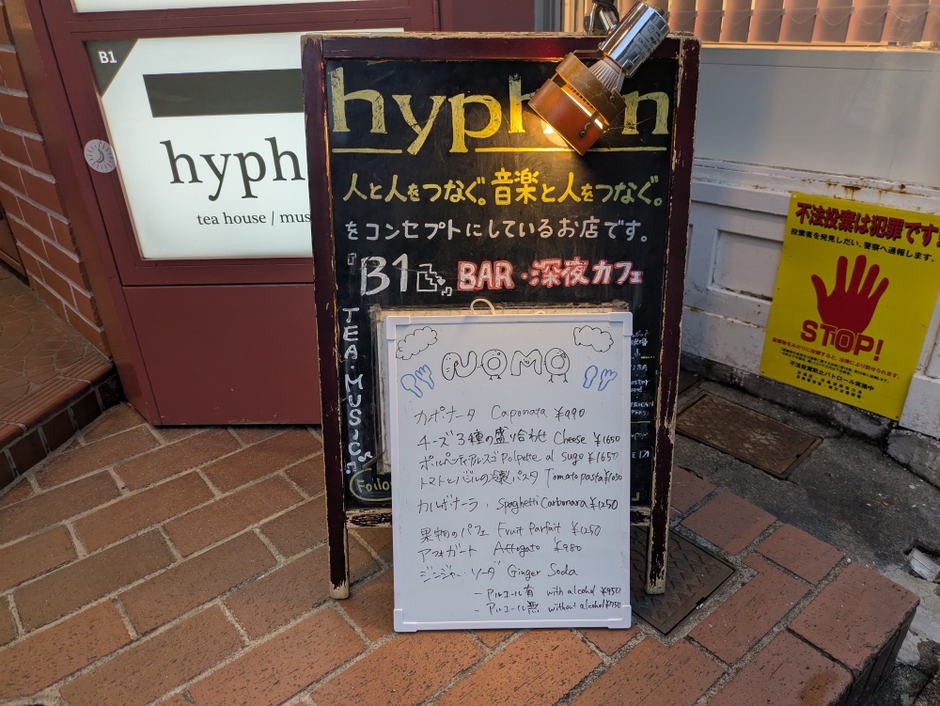 B1
hyph
tea house / mus
hyph n
人と人をつなぐ。音楽と人をつなぐ。
をコンセプトにしているお店です。
「B1 BAR・深夜カフェ
TEA・MUSIC
Follo
NOMO
カポナータ Caponata ¥990
チーズ3種の盛り合わせ Cheese ¥1650
ポルペッティアルスーゴ Polpette al sugo ¥1650
トマトとバジルの冷製パスタ Tomato pasta
カルボナーラ Spaghetti Carbonara ¥1250
果物のパフェ Fruit Parfait ¥1250
アフォガート Affogato ¥980
ジンジャーソーダ Ginger Soda
- アルコール有 with alcohol ¥950
- アルコール無 without alcohol
不法投棄は犯罪です
投棄者を発見しだい、警察へ通報します。
STOP!
不法投棄防止パトロール実施中